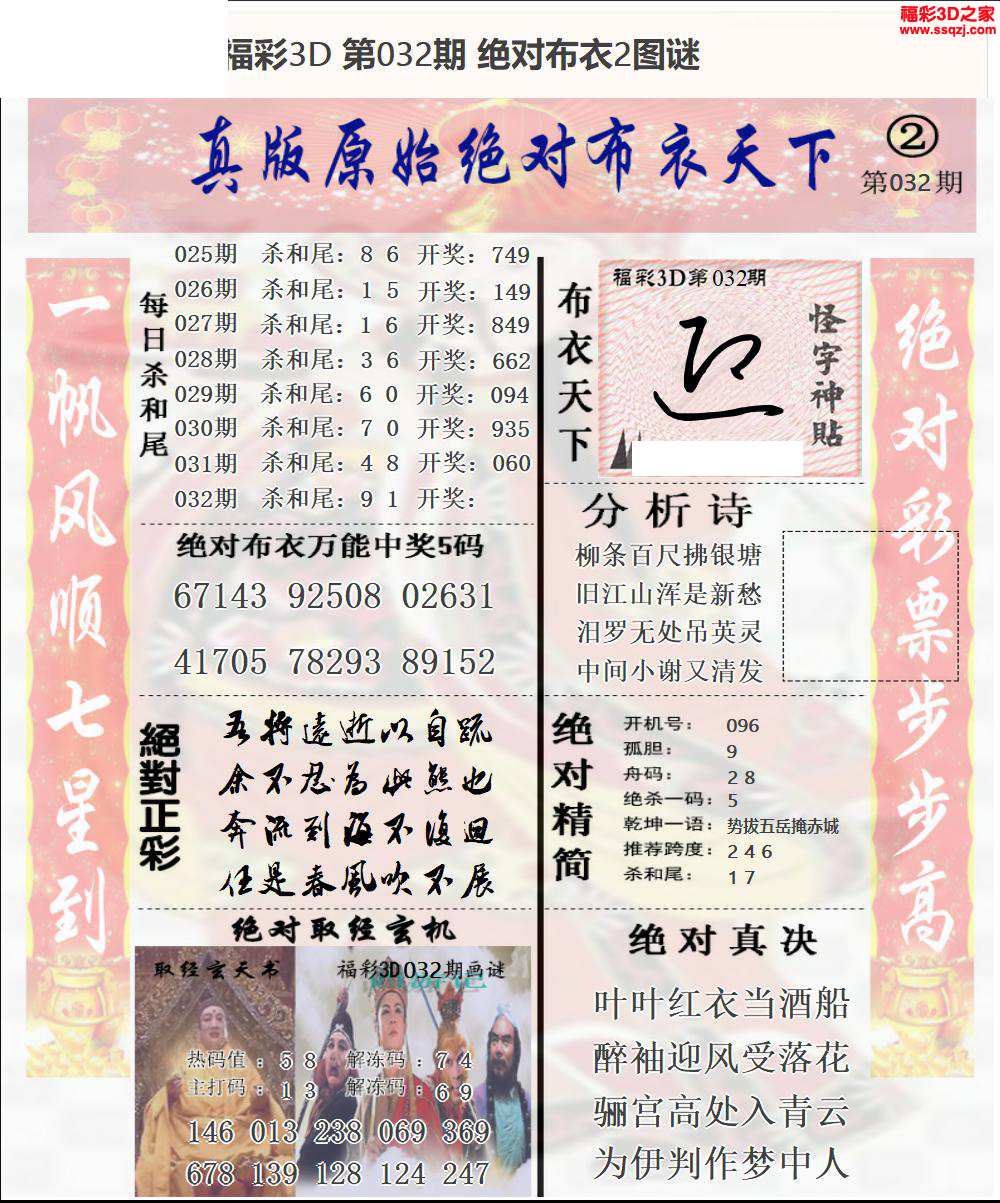 福彩3D之家
www.ssqzj.com
福彩3D 第032期 绝对布衣2图谜
真版原始绝对布衣天下
②
第032期
一帆风顺七星到
每日杀和尾
025期 杀和尾：8 6 开奖：749
026期 杀和尾：1 5 开奖：149
027期 杀和尾：1 6 开奖：849
028期 杀和尾：3 6 开奖：662
029期 杀和尾：6 0 开奖：094
030期 杀和尾：7 0 开奖：935
031期 杀和尾：4 8 开奖：060
032期 杀和尾：9 1 开奖：
绝对布衣万能中奖5码
67143 92508 02631
41705 78293 89152
絕對正彩
吾将遠逝以自疏
余不忍为此態也
奔流到海不復迴
任是春風吹不展
绝对取经玄机
取经玄天书
福彩3D032期画谜
热码值：5 8 解冻码：7 4
主打码：1 3 解冻码：6 9
146 013 238 069 369
678 139 128 124 247
布衣天下
福彩3D第032期
怪字神貼
分析诗
柳条百尺拂银塘
旧江山浑是新愁
汨罗无处吊英灵
中间小谢又清发
绝对精简
开机号：096
孤胆：9
舟码：2 8
绝杀一码：5
乾坤一语：势拔五岳掩赤城
推荐跨度：2 4 6
杀和尾：1 7
绝对真决
叶叶红衣当酒船
醉袖迎风受落花
骊宫高处入青云
为伊判作梦中人
绝对彩票步步高